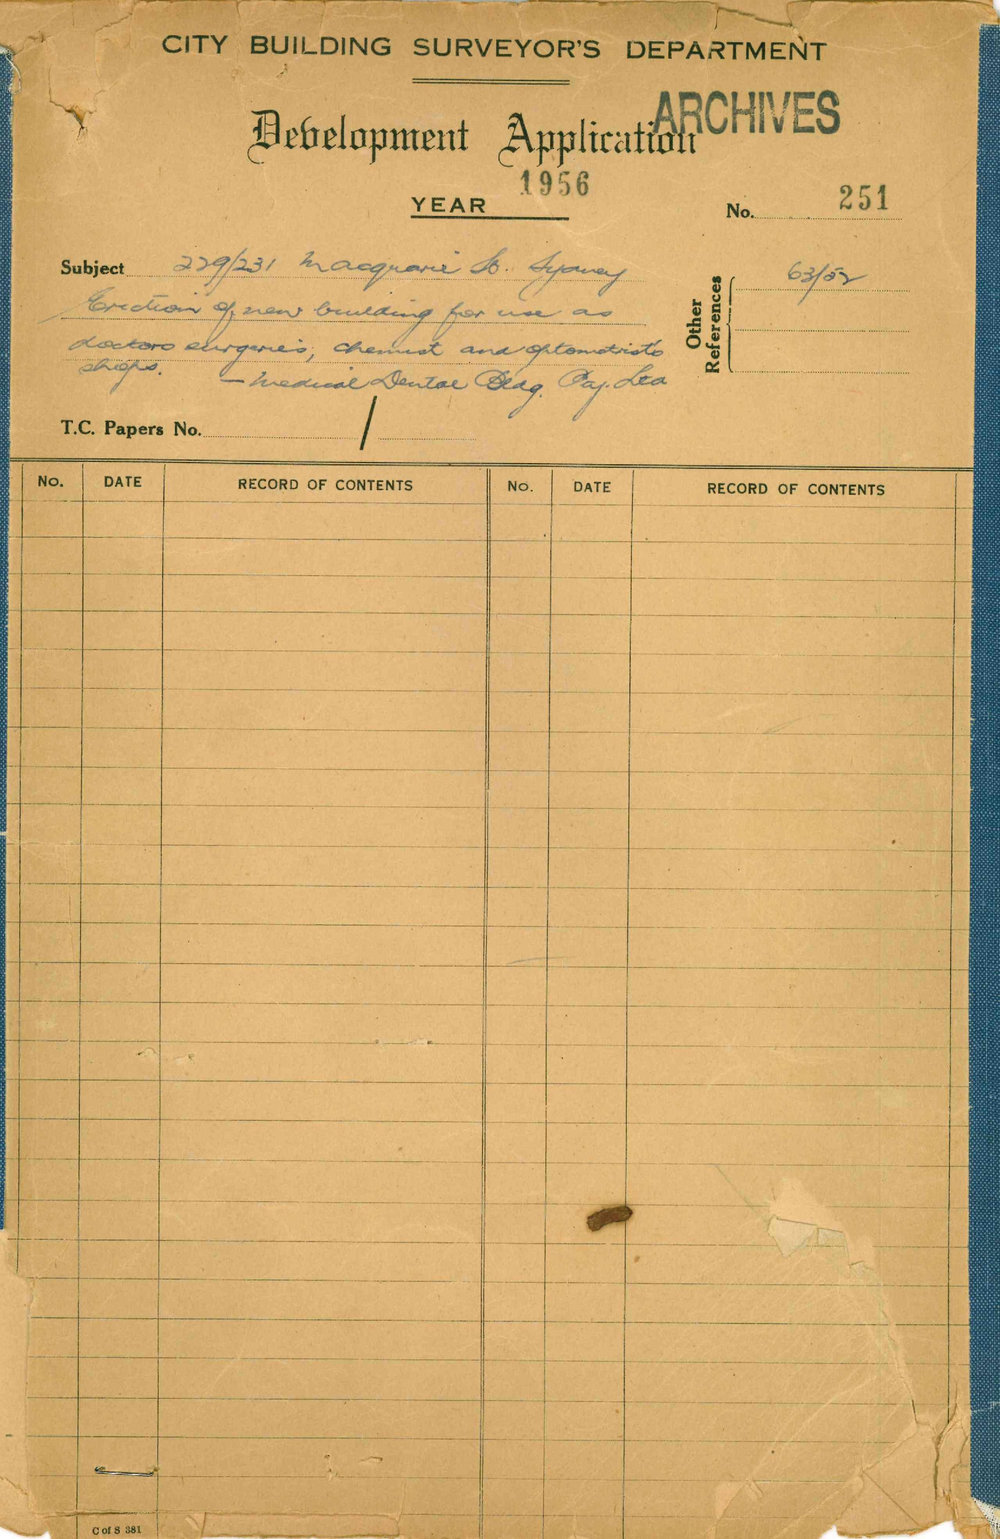 CITY BUILDING SURVEYOR'S DEPARTMENT
ARCHIVES
Development Application
YEAR 1956
No. 251
Subject 229/231 Macquarie St. Sydney
Erection of new building for use as
doctors surgeries, chemist and optometrists
shops. — Medical Dental Bldg. Pty. Ltd
Other References 63/52
T.C. Papers No. /
No. DATE RECORD OF CONTENTS No. DATE RECORD OF CONTENTS
C of S 381